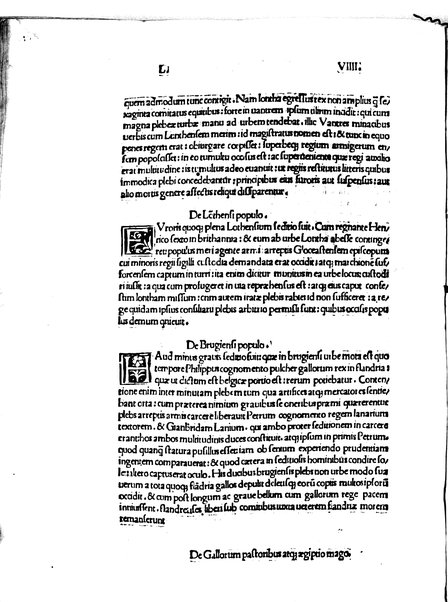 L. VIIII.
quem admodum tunc contigit. Nam lontha egressus rex non amplius q̃ se
xaginta comitatus equitibus: forte in uantrem ipsum ulirum incidit: qui cum
magna plebeæ turbæ manu ad urbem tendebat. illic Vantres minacibus
uerbis cum Lonthensem merim: id magistratus nomen est: & tunc in equo
penes regem erat: obiurgare corpisset: superbeq; regium armigerum en
sem poposcisset: in eo tumultu occisus est: ac superueniente que regi auxilio
erat multitudine: is tumultus adeo euanuit: ut regiis restitutis litteris quibus
immodica plebi concedebantur: principibus eius furoris aut suspensus: aut
alio mortis genere affectis reliqui dissiparentur.
De Lōthensi populo.
Vrorii quoq; plena Lothensium seditio fuit. Cum regnante Hen
rico sexto in brithannia: & eum ab urbe Lontha abesse contingi
ret: populus meri agente armis: arrepto Glocastensem episcopum
cui minoris regii sigilli custodia demandata erat occidit: atq; marchionē suf
forcensem captum in turri: ita enim dicitur munitus in ea urbe locus: custodi
ri iussit: a qua cum profugeret in uia reprehensus est: atq; eius caput confe
stim lontham missum: cum autem iratæ plebis rabies id non sufficeret: a re
ge quidam ipsius consiliarii plebis arbitrio permissi sunt: quibus occisis popu
lus demum quieuit.
De Brugiensi populo.
Aud minus grauis seditio fuit quæ in brugiensi urbe mota est quo
tempore Philippus cognomento pulcher gallorum rex in flandria
quæ ut dictum est belgicæ portio est: rerum potiebatur. Conten
tione enim inter minutam plebem tum qua artifices atq; mercatores sentie/
bant orta: cum præterea nimium grauibus se oneribus præmi quærerentur
plebs arreptis armis carcere liberauit Petrum cognomento regem lanarium
textorem, & Gianbridam Lanium, qui ambo propter seditionem in carcere
erant: hos ambos multitudinis duces constituit, atq; ipsum in primis Petrum
quod quanq̃ statura pusillus esset iam ob senium experiendo prudentiam
ingentem comparauerat: & quod cætera in seditiosis hominibus condire so/
let: altero captus erat oculo. His duobus brugiensis plebs non urbe modo sua
uerum a tota quoq; flādria gallos depulit: deleuisq; eorū copiis multos ipsorū
occidit. & cum post longum ac graue bellum cum gallorum rege pacem
iniuissent, flandrenses, liberi sub comitibus iuxta ueterem flandriæ morem
remanserunt
De Gallorum pastoribus atq; ægiptio mago.